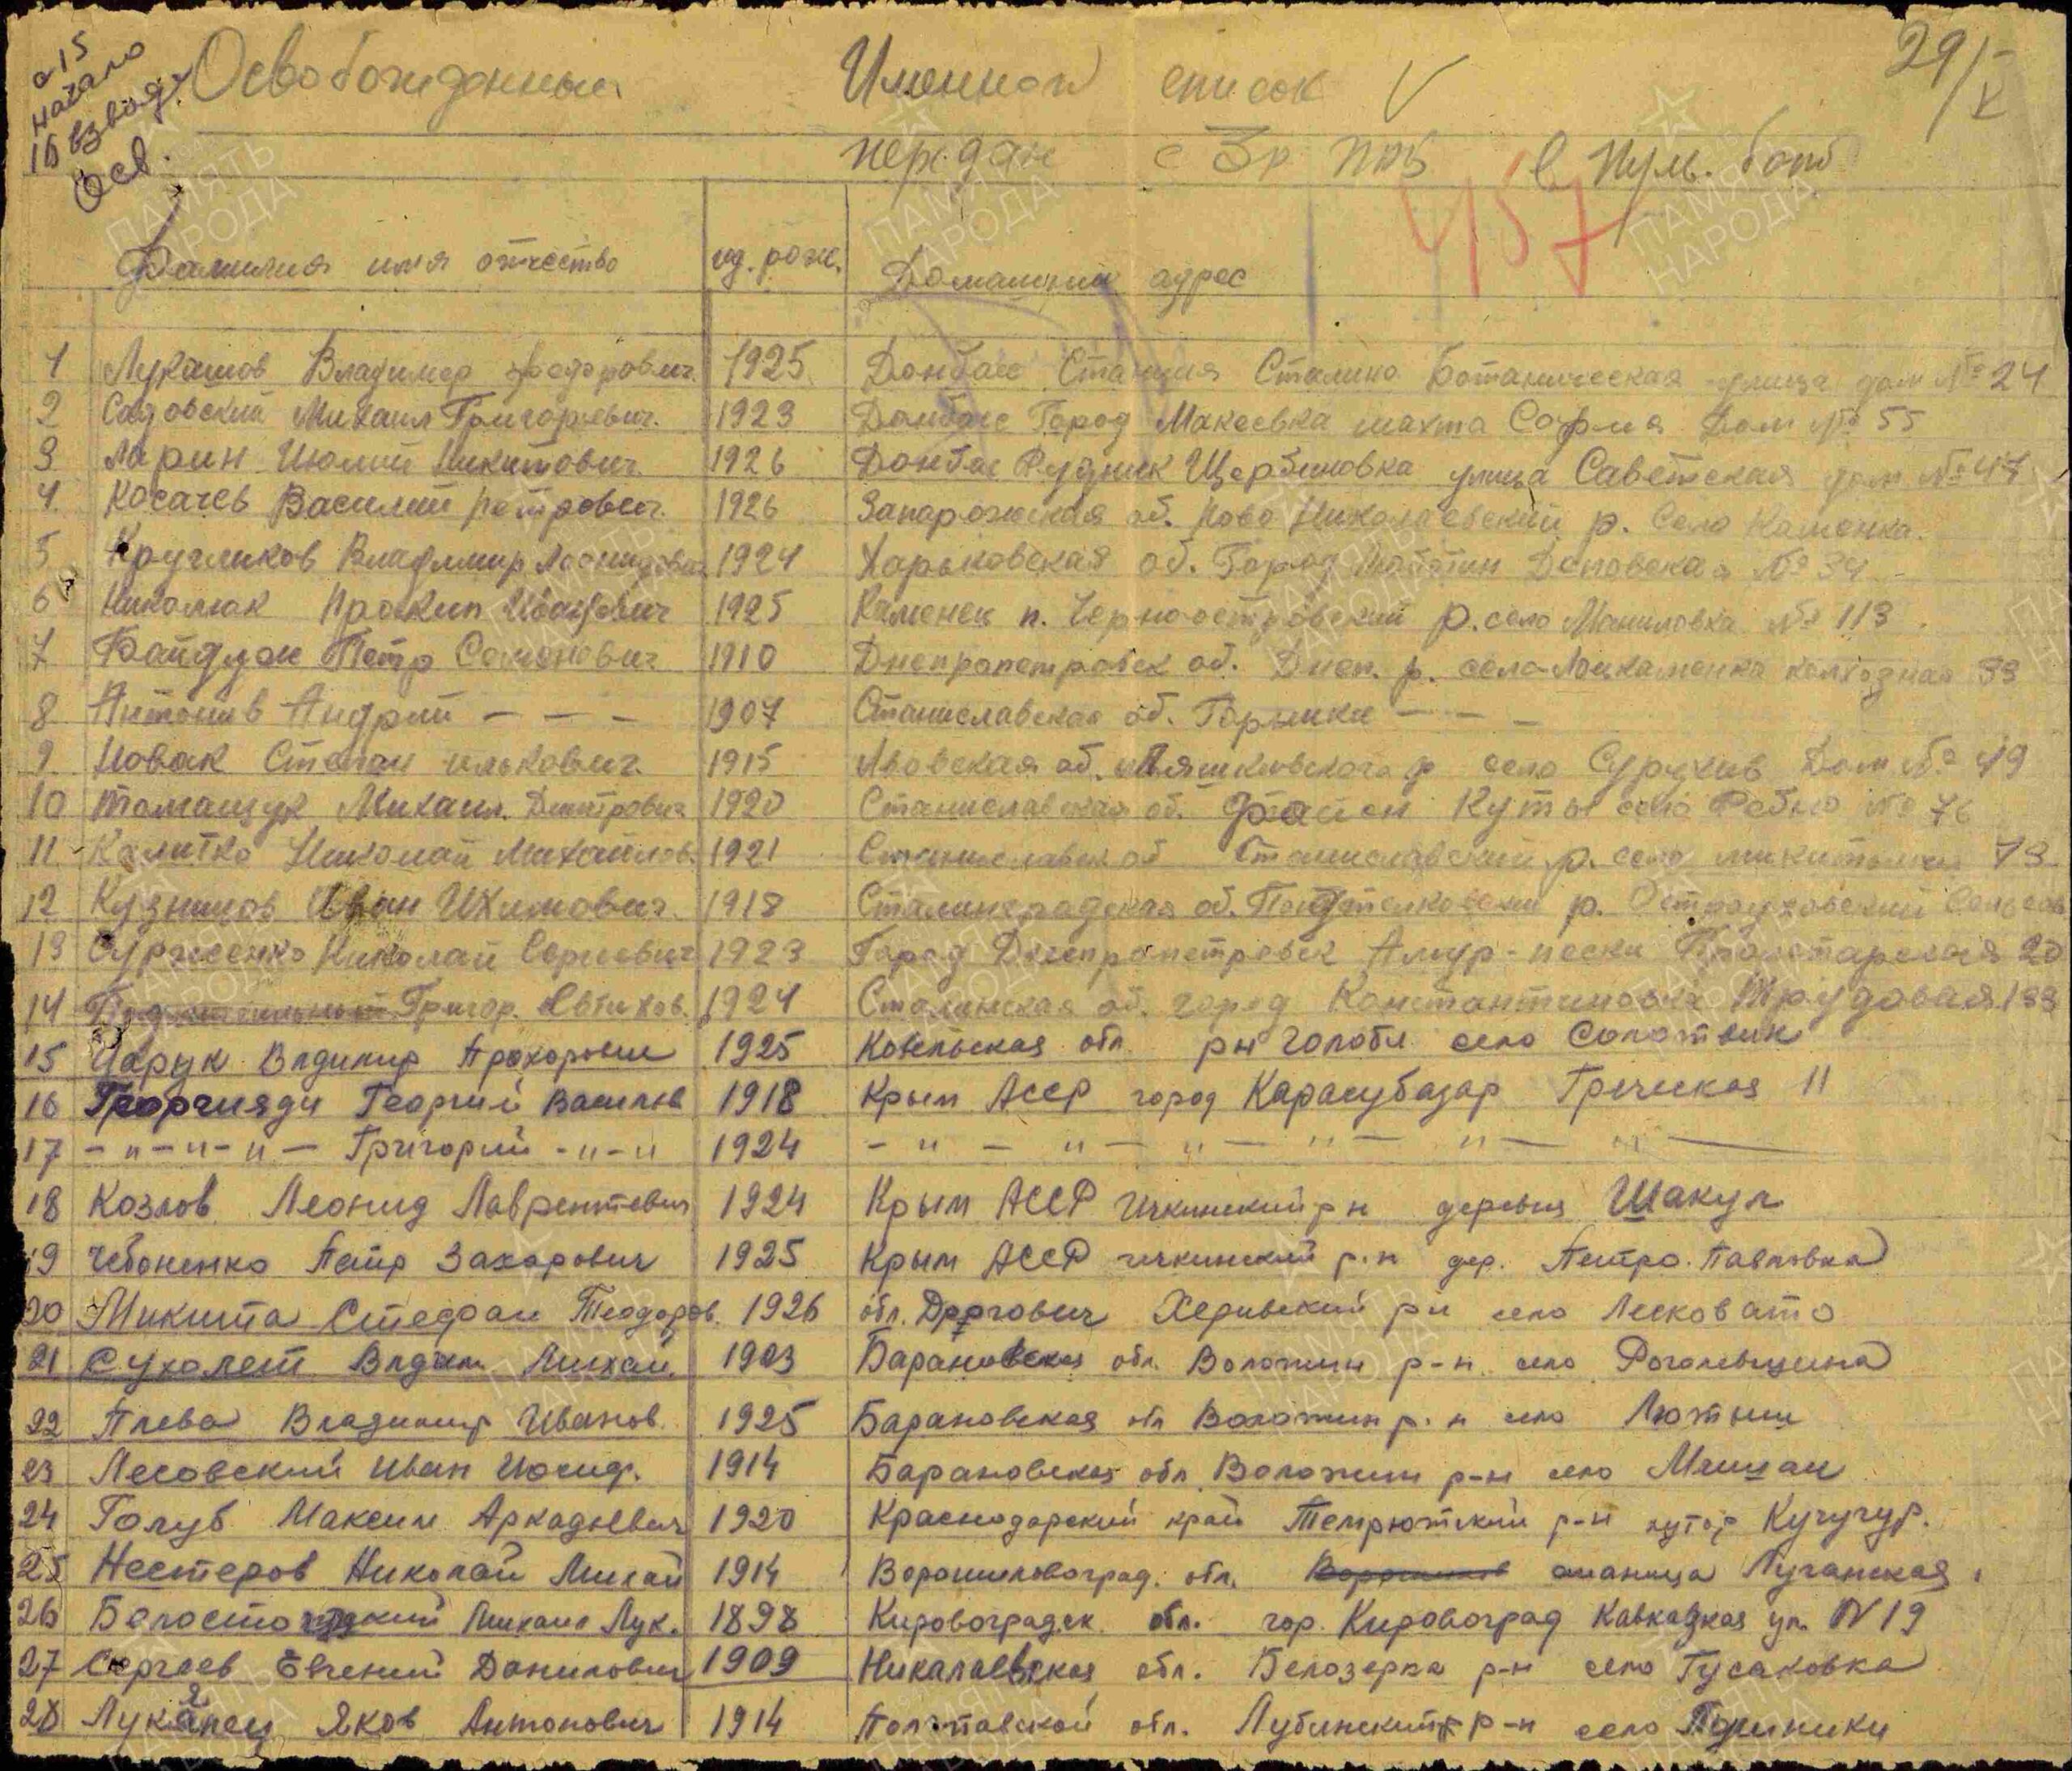 с 15
начало
1б взвода
Осв.
Освобожденный Именной список
29/V
передан с 3р в пульб. бат
457
Фамилия имя отчество год. рож. Домашний адрес
1 Лукашов Владимер Феодорович. 1925 Донбасс Станция Сталино Ботаническая улица дом № 24
2 Садовский Михаил Григорьевич. 1923 Донбасс Город Макеевка шахта София Дом № 55
3 Ларин Июлий Никитович. 1926 Донбас Рудник Щербиновка улица Саветская дом № 47
4. Косачев Василий Петрович. 1926 Запарожская об. Ново Николаевский р. Село Каменка.
5 Кругликов Владимир Леонидович 1924 Харьковская об. Город Деповская № 34
6 Николюк Прокип Иванович 1925 Каменец п. Черноостровский р. село Маниловка № 113
7 Байдуж Петр Семенович 1910 Днепропетровск об. Днеп. р. село Лоцкаменка колхозная 33
8 Антонив Андрий - - - 1907 Станиславская об. - - -
9 Новак Степан илькович. 1915 Лвовская об. р село Сурухив Дом № 49
10 Томащук Михаил. Дмитрович 1920 Станиславская об. район Куты село № 76
11 Калитко Николай Михайлов. 1921 Станиславск об Станиславский р. село 73
12 Кузницов Иван Ихимович. 1918 Сталинградская об. Подтелковский р. Остроуховский Сельсов
13 Сурженко Николай Сергиевич 1923 Город Днепропетровск Амур-пески Пролетарская 20
14 Григор. Евтихов. 1924 Сталинская об. город Константиновка Трудовая 133
15 Царук Владимир Прохорович 1925 Ковельская обл рн Голобл село Солотвин
16 Георгияди Георгий Васильев 1918 Крым АССР город Карасубазар Греческая 11
17 - " - " - " - Григорий - " - " 1924 - " - " - " - " - " - " -
18 Козлов Леонид Лаврентевич 1924 Крым АССР Ичкинский р н деревня Шакул
19 Чебоненко Петр Захарович 1925 Крым АССР ичкинский р-н дер. Петро. Павловка
20 Микита Стефан Теодоров. 1926 обл. Дрогович р н село Лесковато
21 Сухолет Владим. Михай. 1903 Барановская обл. Воложин р-н село Рогалевщина
22 Плева Владимир Иванов. 1925 Барановская обл Воложин р. н село
23 Лесовский Иван Иосиф. 1914 Барановская обл. Воложин р-н село
24 Голуб Максим Аркадьевич 1920 Краснодарский край Темрютский р-н хутор Кучугур.
25 Нестеров Николай Михай 1914 Ворошиловоград. обл. станица Луганская.
26 Белостоцкий Михаил Лук. 1898 Кировоградск. обл. гор. Кировоград Кавказкая ул. N 19
27 Сергеев Евгений Данилович 1909 Никалаевская обл. Белозерка р-н село Гусаковка
28 Лукянец Яков Антонович 1914 Полтавской обл. Лубинский р-н село